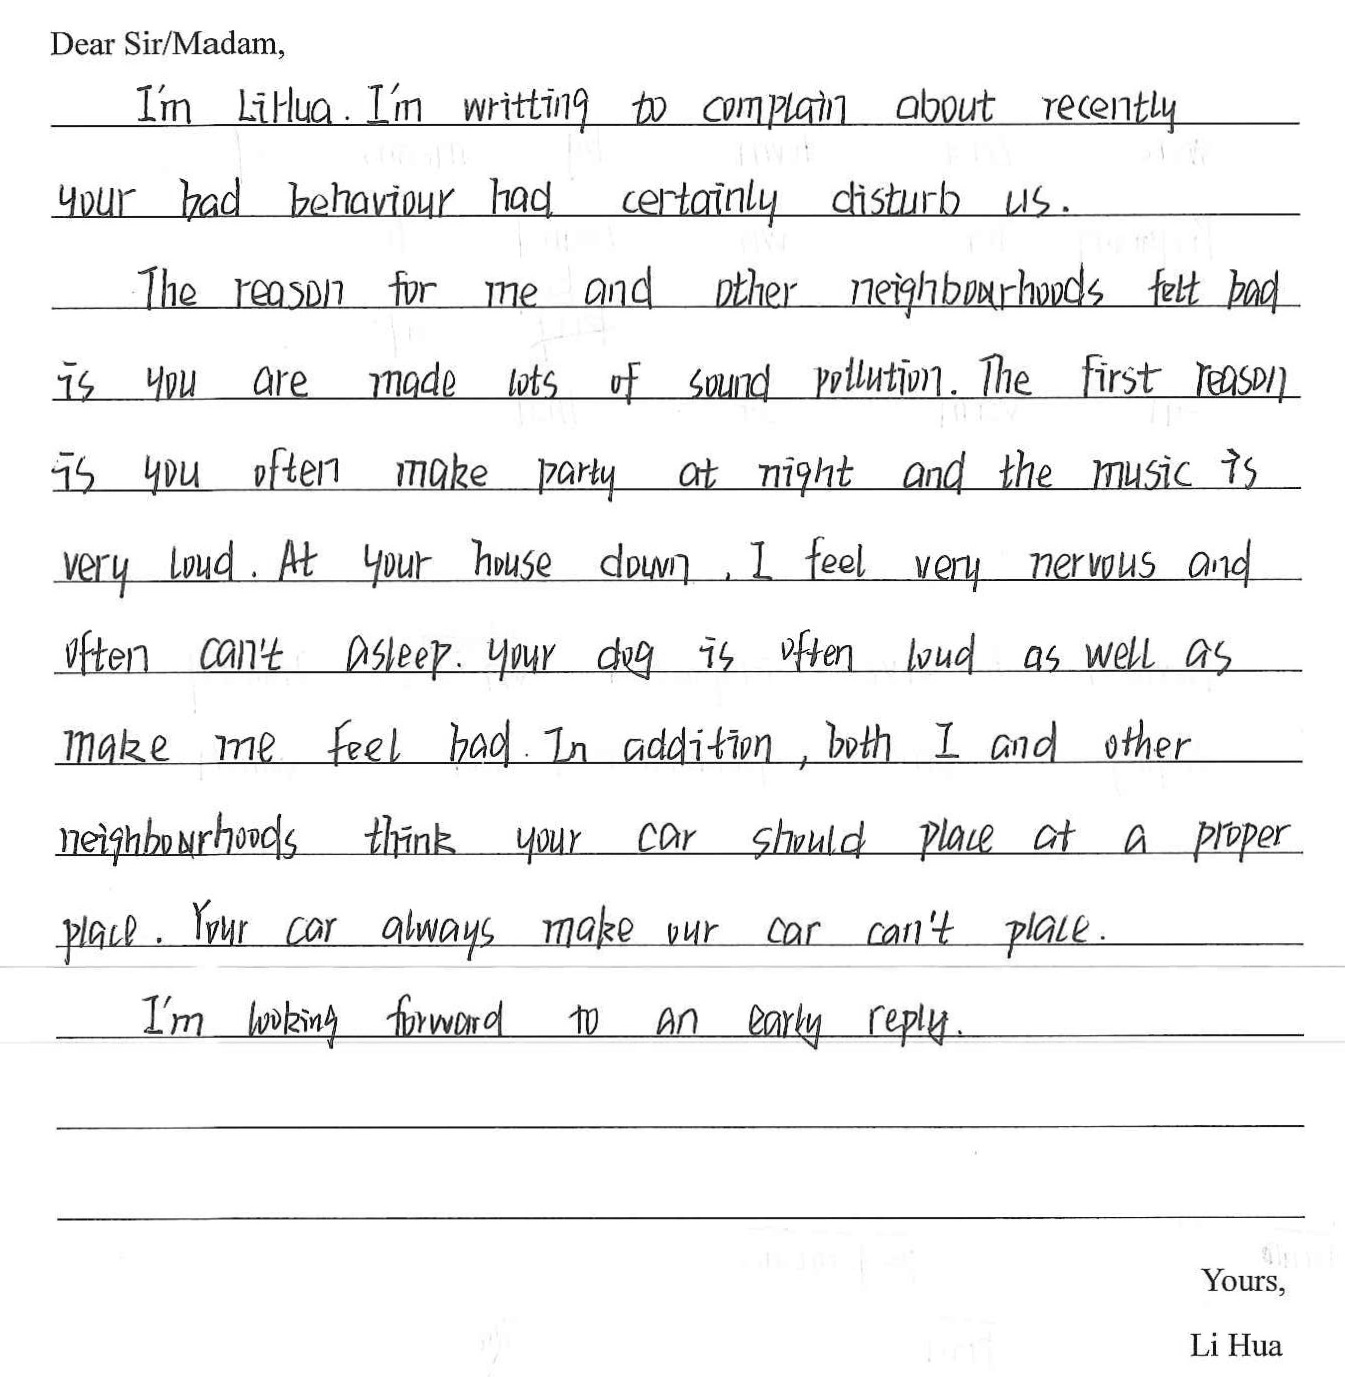 Dear Sir/Madam,
I'm LiHua. I'm writting to complain about recently
your bad behaviour had certainly disturb us.
The reason for me and other neighbourhoods felt bad
is you are made lots of sound pollution. The first reason
is you often make party at night and the music is
very loud. At your house down, I feel very nervous and
often can't asleep. your dog is often loud as well as
make me feel bad. In addition, both I and other
neighbourhoods think your car should place at a proper
place. Your car always make our car can't place.
I'm looking forward to an early reply.
Yours,
Li Hua